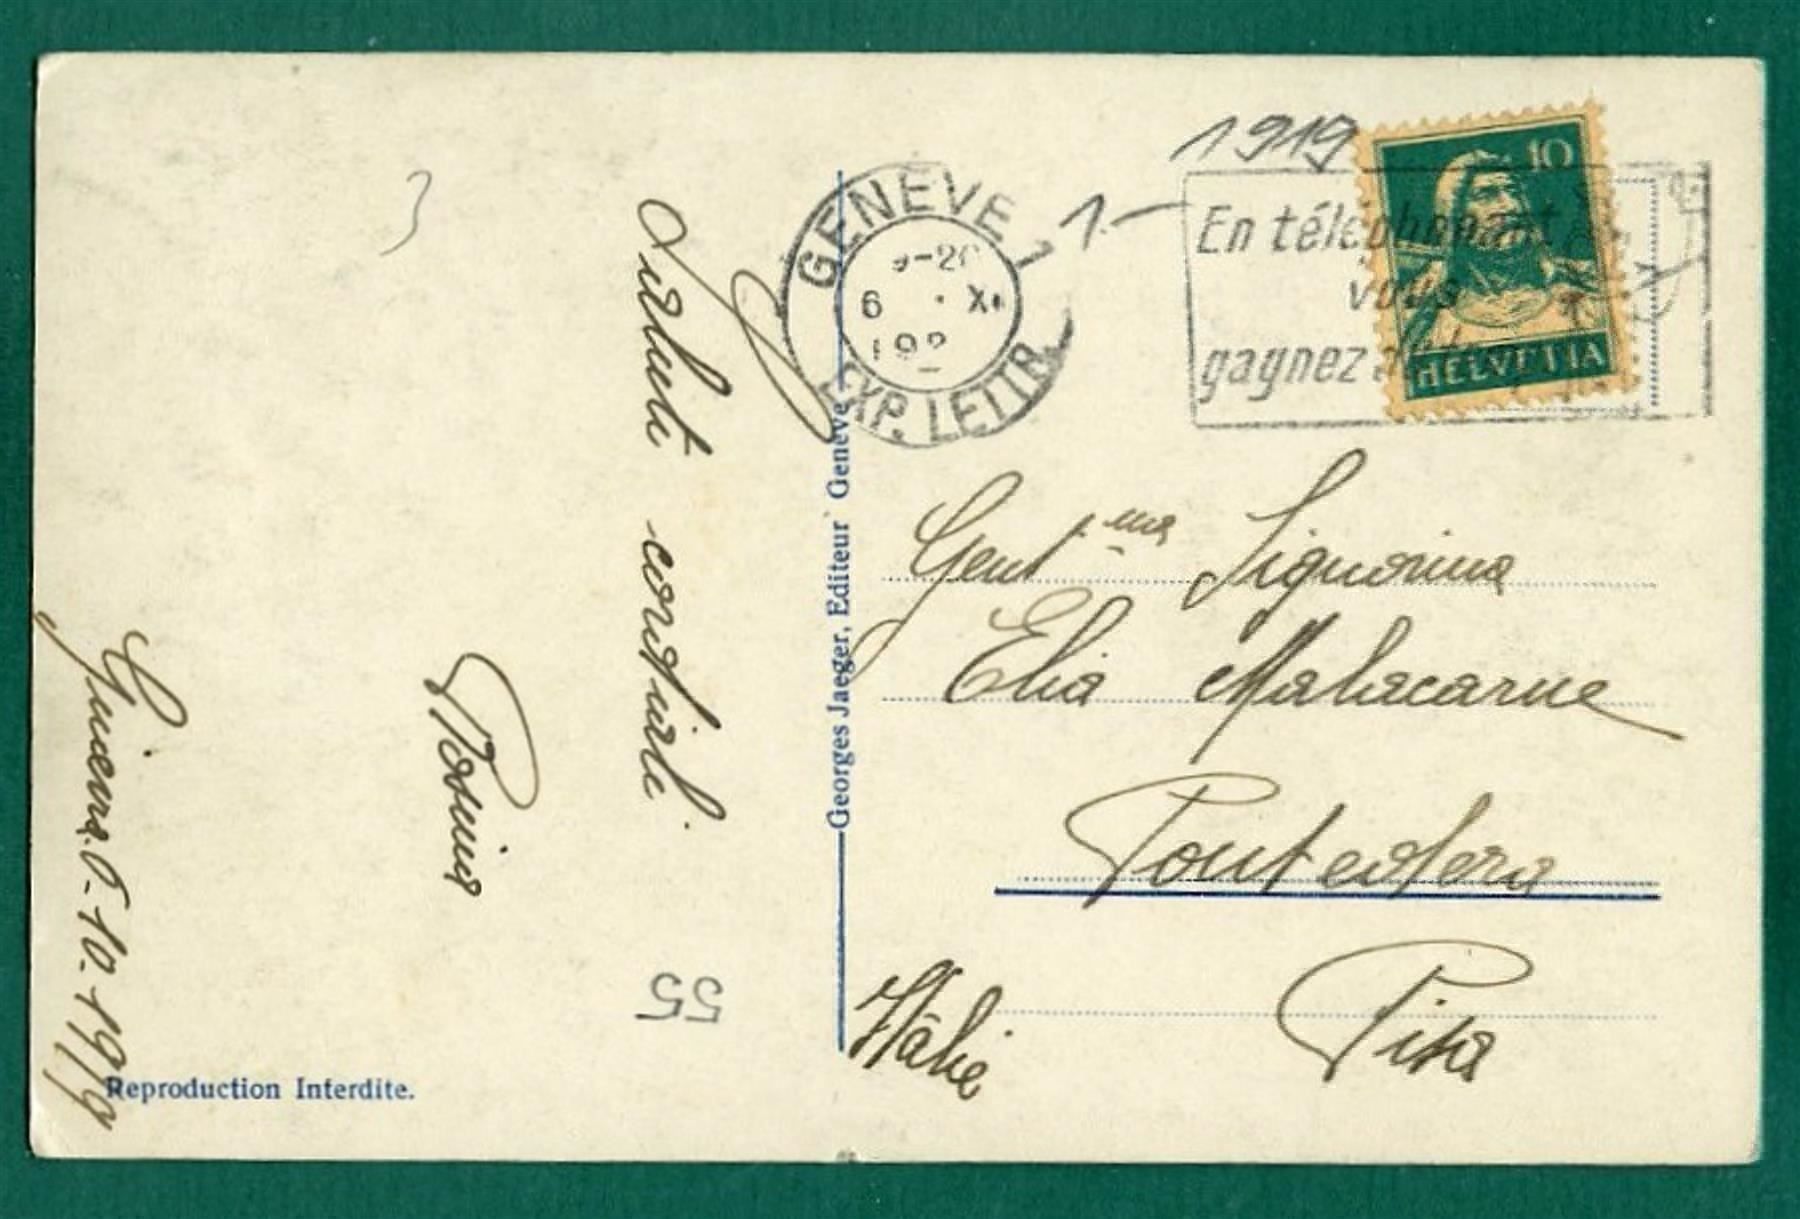 3
Saluti cordiali.
Rosina
Ginevra. 6-10-1919
55
Reproduction Interdite.
Georges Jaeger, Editeur Genève
GENÈVE 1
6 . X.
192
EXP. LETTR.
1919
1.-
En téléphonant
vous
gagnez
10
HELVETIA
Gent.ma Signorina
Elia Malacarne
Pontedera
Pisa
Itálie